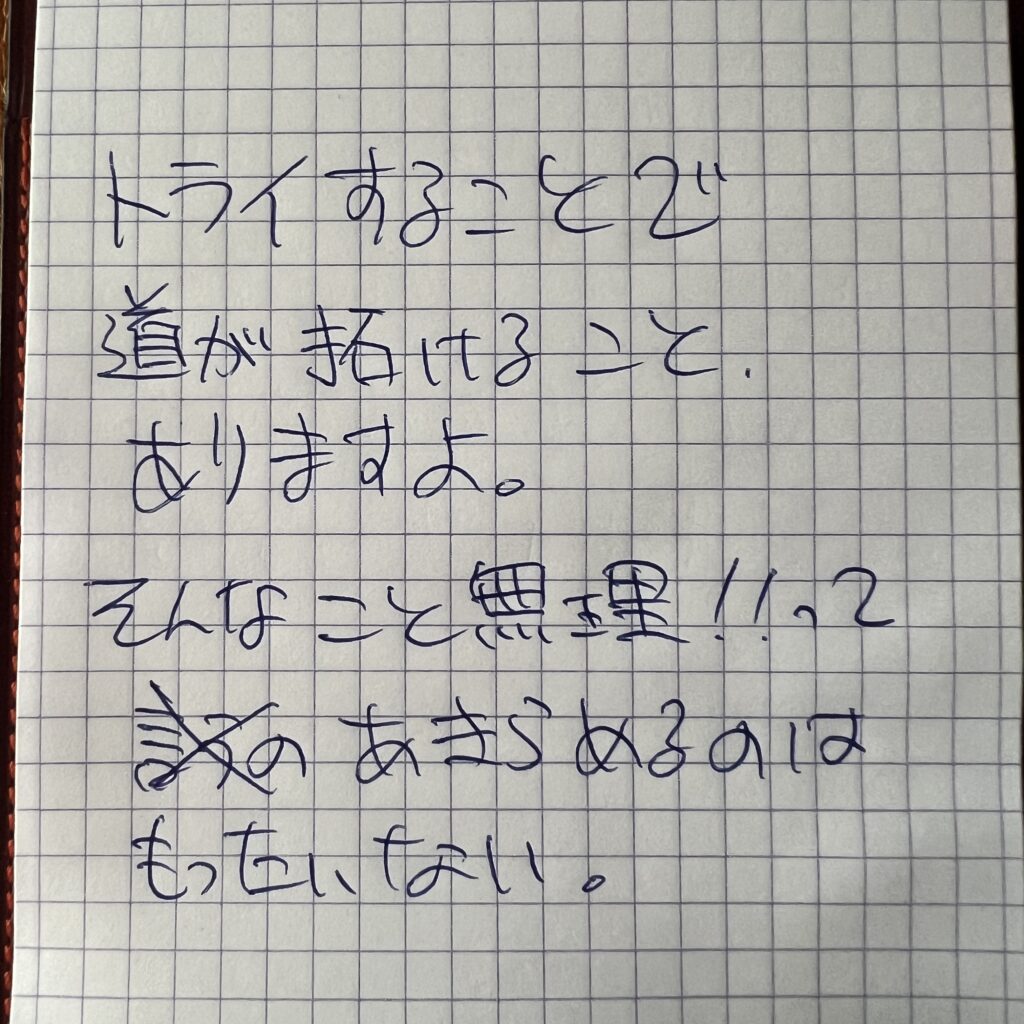 トライすることで
道が拓けること.
ありますよ。
そんなこと無理!!って
あきらめるのは
もったいない。